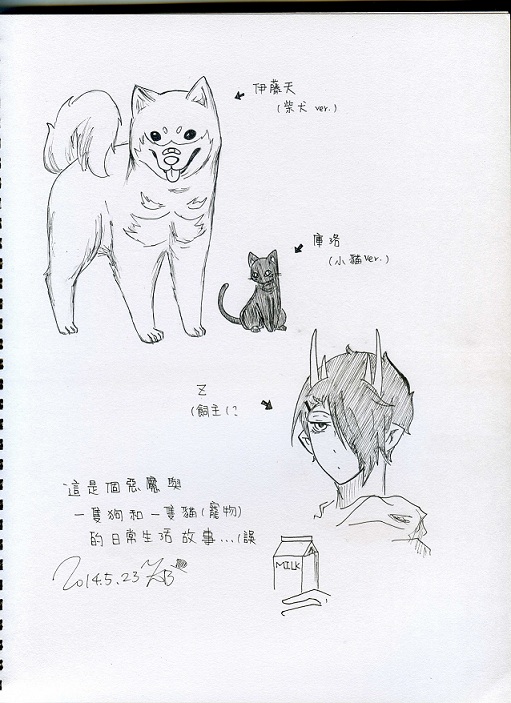 伊藤天
(柴犬 ver.)
庫洛
(小貓 ver.)
Z
(飼主(?
這是個惡魔與
一隻狗和一隻貓(寵物)
的日常生活故事...(誤
MILK
2014.5.23